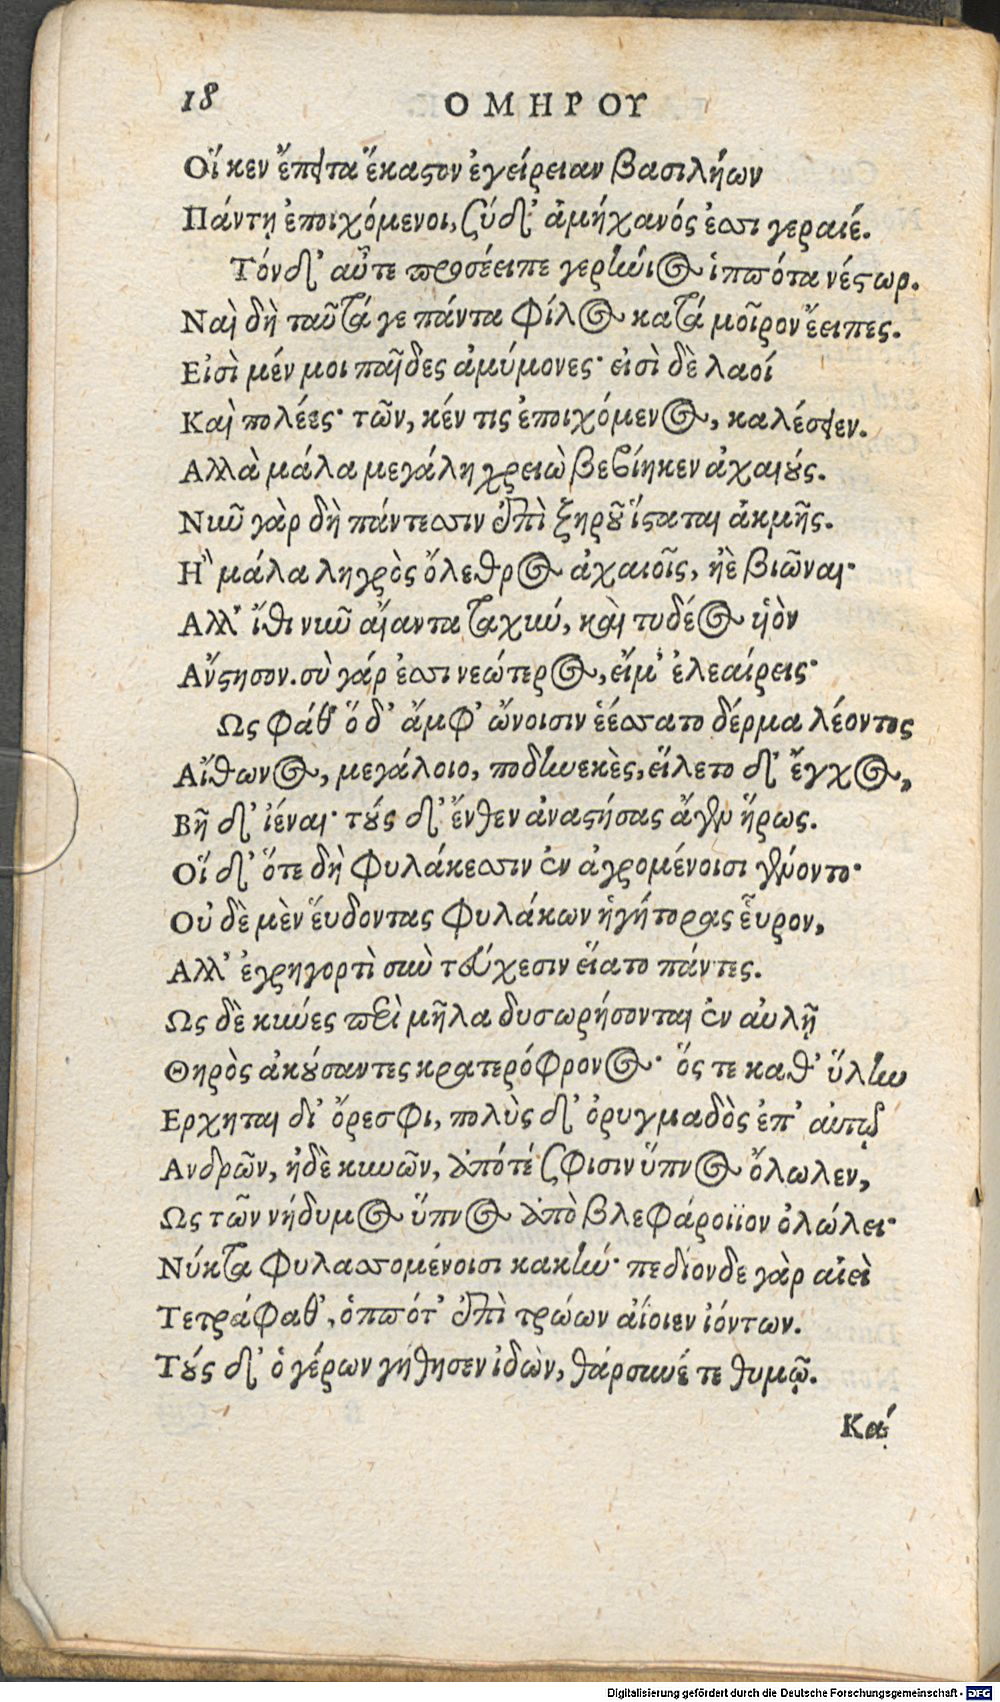 18 ΟΜΗΡΟΥ
Οἵ κεν ἔπειτα ἕκαστον ἐγείρειαν βασιλήων
Πάντῃ ἐποιχόμενοι, σύ δ' ἀμήχανός ἐσσι γεραιέ.
Τόν δ' αὖτε προσέειπε γερήνιος ἱππότα νέστωρ.
Ναὶ δὴ ταῦτά γε πάντα φίλος κατά μοῖρον ἔειπες.
Εἰσὶ μέν μοι παῖδες ἀμύμονες· εἰσὶ δὲ λαοί
Καὶ πολέες· τῶν, κέν τις ἐποιχόμενος, καλέσειεν.
Αλλὰ μάλα μεγάλη χρειὼ βεβίηκεν ἀχαιούς.
Νῦν γὰρ δὴ πάντεσσιν ἐπὶ ξηροῦ ἵσταται ἀκμῆς.
Η῍ μάλα λυγρὸς ὄλεθρος ἀχαιοῖς, ἠὲ βιῶναι·
Αλλ' ἴθι νῦν αἴαντα ταχύν, καὶ τυδέος υἱὸν
Αν῎στησον. σὺ γάρ ἐσσι νεώτερος, εἴ μ' ἐλεαίρεις·
Ως φάθ' ὅ δ' ἄμφ' ὤνοισιν ἑέσσατο δέρμα λέοντος
Αἴθωνος, μεγάλοιο, ποδηνεκὲς, εἵλετο δ' ἔγχος,
Βῆ δ' ἰέναι· τούς δ' ἔνθεν ἀναστήσας ἄγεν ἥρως.
Οἵ δ' ὅτε δὴ φυλάκεσσιν ἐν ἀγρομένοισι γένοντο·
Οὐ δὲ μὲν ἕυδοντας φυλάκων ἡγήτορας ἕυρον,
Αλλ' ἐγρηγορτὶ σὺν τεύχεσιν εἵατο πάντες.
Ως δὲ κύνες περὶ μῆλα δυσωρήσονται ἐν αὐλῇ
Θηρὸς ἀκούσαντες κρατερόφρονος· ὅς τε καθ' ὕλην
Ερχηται δι' ὄρεσφι, πολὺς δ' ὀρυγμαδὸς ἐπ' αὐτῷ
Ανδρῶν, ἠδὲ κυνῶν, ἀπό τέ σφισιν ὕπνος ὄλωλεν,
Ως τῶν νήδυμος ὕπνος ἀπὸ βλεφάροιϊον ὀλώλει·
Νύκτα φυλασσομένοισι κακήν· πεδίονδε γὰρ αἰεὶ
Τετράφαθ', ὁππότ' ἐπὶ τρώων ἀΐοιεν ἰόντων.
Τούς δ' ὁ γέρων γήθησεν ἰδὼν, θάρσυνέ τε θυμῷ.
Καί
Digitalisierung gefördert durch die Deutsche Forschungsgemeinschaft - DFG